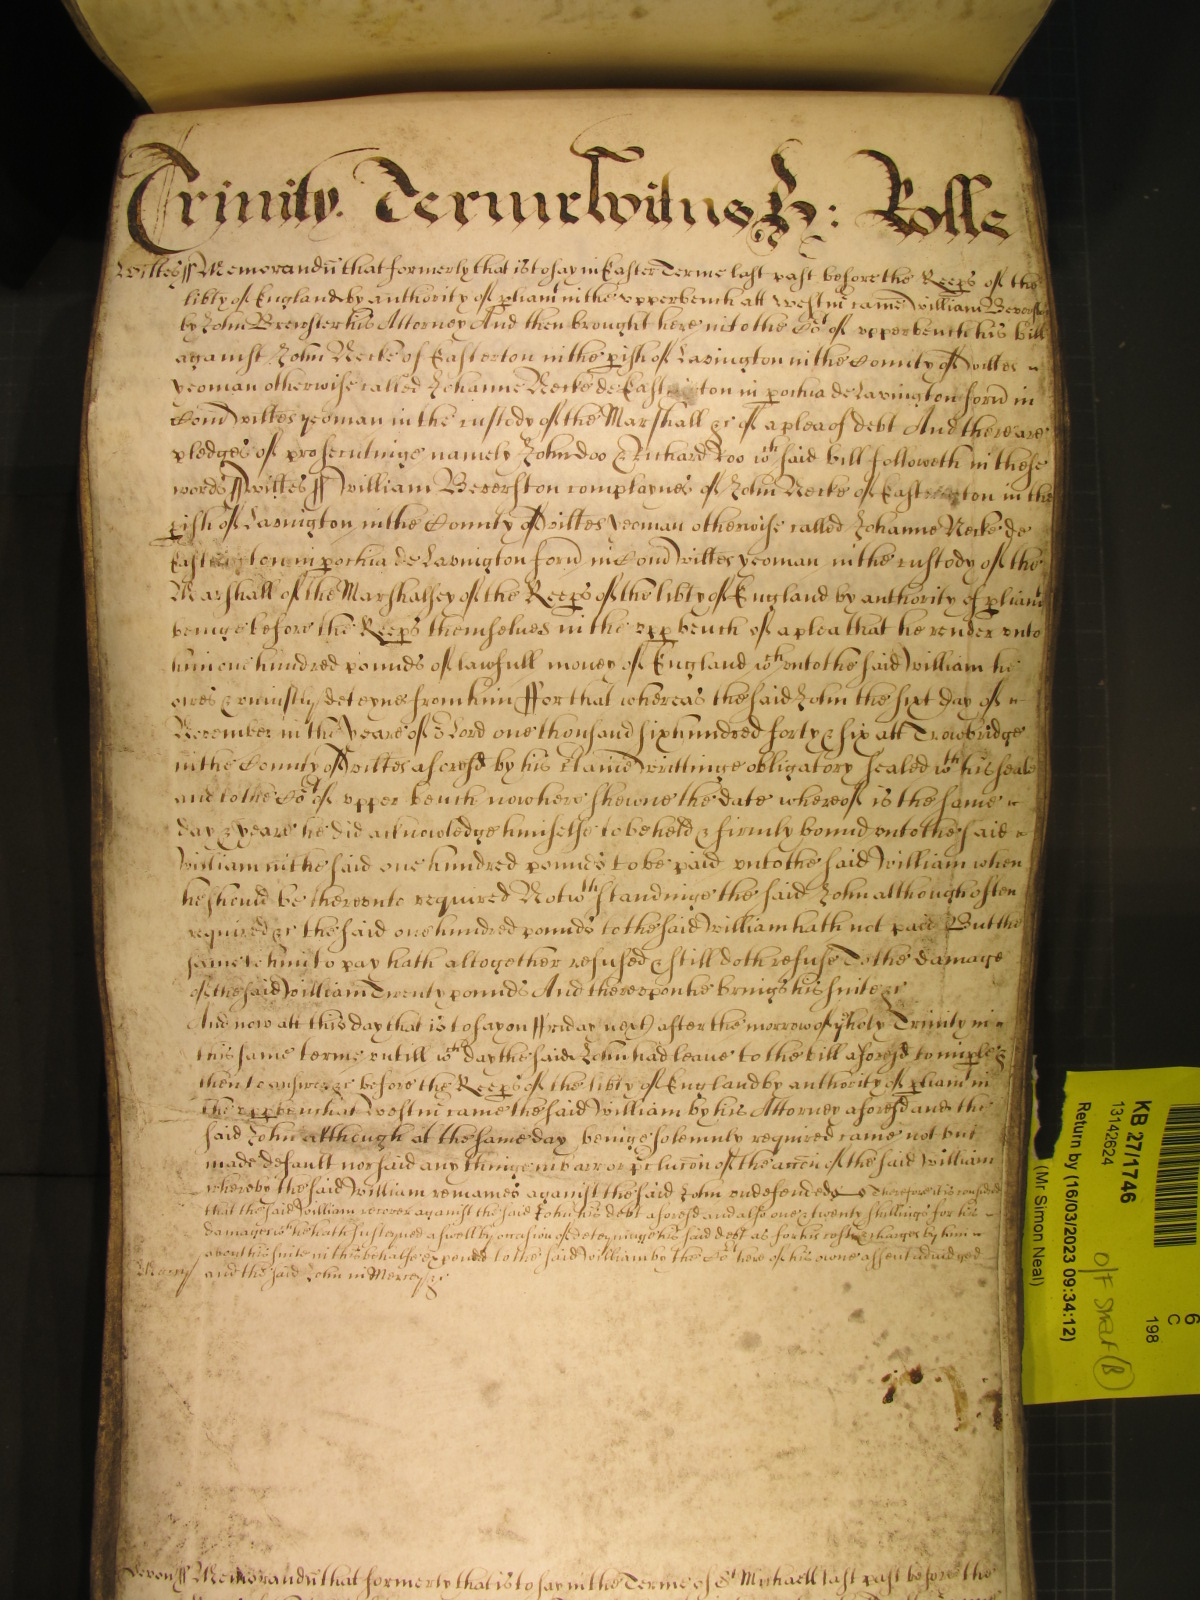 Trinity. Terme Witnes H: Rolle
Willtes ss Memorandū that formerly that is to say in Easter Terme last past before the Keeps of the
libty of England by authority of pliamt in the upperbench att Westmr came William Beverston
by John Brewster his Attorney And then brought here into the Cot of upper bench his bill
against John Necke of Easterton in the pish of Lavington in the County of Wiltes
yeoman otherwise called Johanne Necke de Easterton in pochia de Lavington forū in
Com Wiltes yeoman in the custody of the Marshall &c of a plea of debt And there are
pledges of prosecutinge namely John doo & Richard Roo wch said bill followeth in these
words ss Wiltes ss William Beverston complaynes of John Necke of Easterton in the
pish of Lavington in the County of Wiltes yeoman otherwise called Johanne Necke de
Easterton in pochia de Lavington forū in Com Wiltes yeoman in the custody of the
Marshall of the Marshalsey of the Keeps of the libty of England by authority of pliamt
beinge before the Keeps themselves in the upp bench of a plea that he render unto
him one hundred pounds of lawfull money of England wch unto the said William he
owes & uniustly deteynes from him ffor that whereas the said John the sixt day of
November in the yeare of or Lord one thousand six hundred forty & six att Trowbridge
in the County of Wiltes aforesd by his certaine writtinge obligatory sealed wth his seale
and to the Cot of upper bench now here shewne the date whereof is the same
day & yeare he did acknowledge himselfe to be held & firmly bound unto the said
William in the said one hundred pounds to be paid unto the said William when
he should be thereunto required Notwthstandinge the said John although often
required &c the said one hundred pounds to the said William hath not paid But the
same to him to pay hath altogether refused & still doth refuse To the damage
of the said William Twenty pounds And thereupon he brings his suite &c
And now att this day that is to say on ffriday next after the morrow of ye holy Trinity in
this same terme untill wch day the said John had leave to the bill aforesd to imple &
then to answer &c before the Keeps of the libty of England by authority of pliamt in
the upp bench at Westmr came the said William by his Attorney aforesd and the
said John although at the same day beinge solemnly required came not but
made default nor said any thinge in barr or pclucon of the accon of the said William
whereby the said William remaines against the said John undefended Therefore it is considered
that the said William recover against the said John his debt aforesd and also one & twenty shillings for his
damages wch he hath susteyned aswell by occasion of deteyninge his said debt as for his costs & charges by him
about his suite in this behalfe expended to the said William by the Cot here of his owne assent adiudged
Mercy and the said John in Mercy &c
Devon ss Memorandū that formerly that is to say in the Terme of St Michaell last past before the
KB 27/1746
13142624
Return by (16/03/2023 09:34:12)
(Mr Simon Neal)
6
C
198
O/F Straf (B)